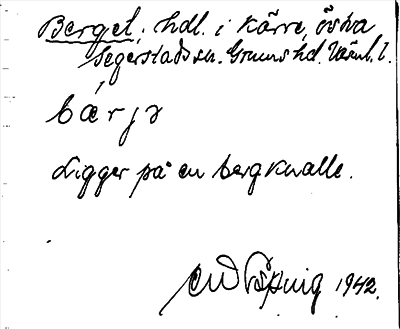 Berget, hdl. i Kärre, östra
Segerstads sn. Grums hd. Värml. l.
bærjə
Ligger på en bergknalle.
1942.